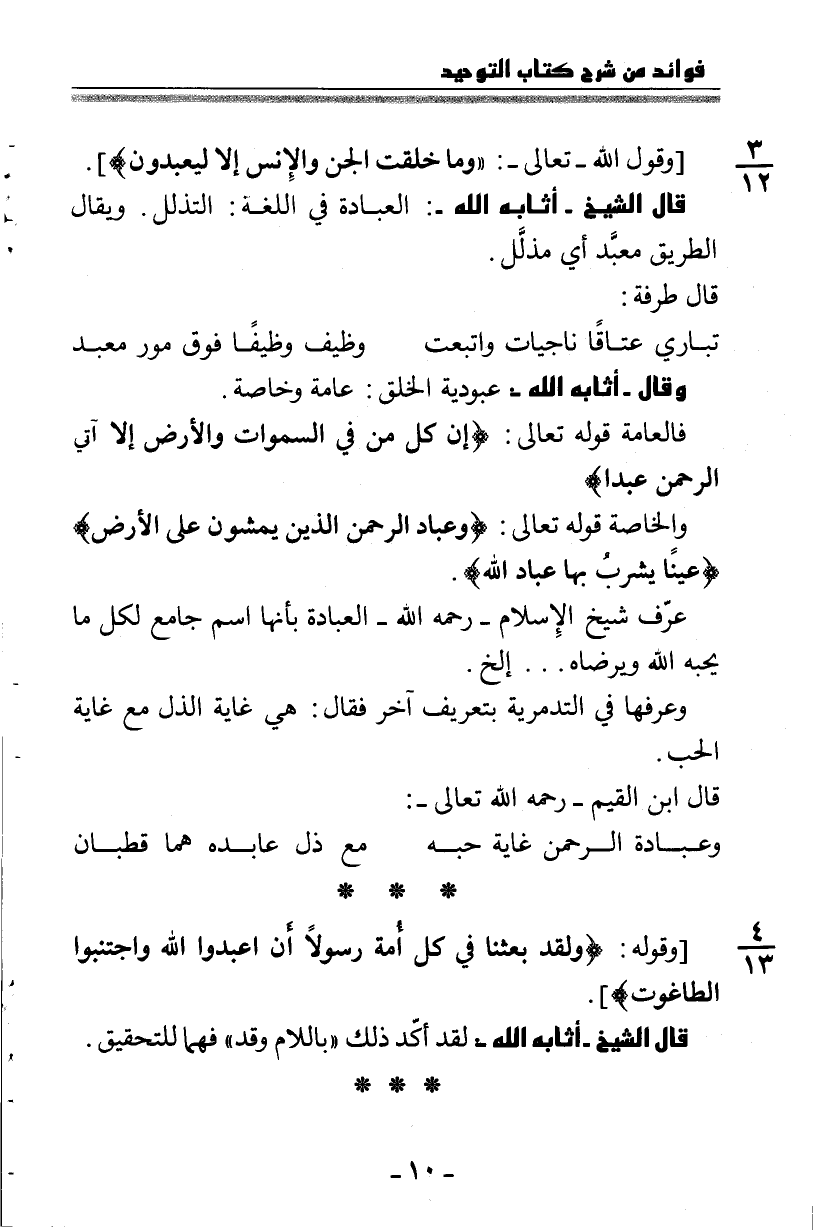 فوائد من شرح كتاب التوحيد
٣
١٢
[وقول الله ـ تعالى ـ: «وما خلقت الجن والإنس إلا ليعبدون﴾].
قال الشيخ ـ أثـابـه الله ـ: العبـادة في اللغـة: التذلل. ويقال
الطريق معبَّد أي مذلَّل.
قال طرفة:
تبـاري عتـاقًا ناجيات واتبعت وظيف وظيفًـا فوق مور معبـد
وقال ـ أثابه الله ـ: عبودية الخلق: عامة وخاصة.
فالعامة قوله تعالى: ﴿إن كل من في السموات والأرض إلا آتي
الرحمن عبدا﴾
والخاصة قوله تعالى: ﴿وعباد الرحمن الذين يمشون على الأرض﴾
﴿عينًا يشربُ بها عباد الله﴾.
عرّف شيخ الإسلام ـ رحمه الله ـ العبادة بأنها اسم جامع لكل ما
يحبه الله ويرضاه... إلخ.
وعرفها في التدمرية بتعريف آخر فقال: هي غاية الذل مع غاية
الحب.
قال ابن القيم ـ رحمه الله تعالى ـ:
وعـبـــادة الـــرحمن غاية حبـــه مع ذل عابـــده هما قطبـــان
* * *
٤
١٣
[وقوله: ﴿ولقد بعثنا في كل أُمة رسولاً أَن اعبدوا الله واجتنبوا
الطاغوت﴾].
قال الشيخ ـ أثابه الله ـ: لقد أكّد ذلك «باللام وقد» فهما للتحقيق.
* * *
- ١٠ -